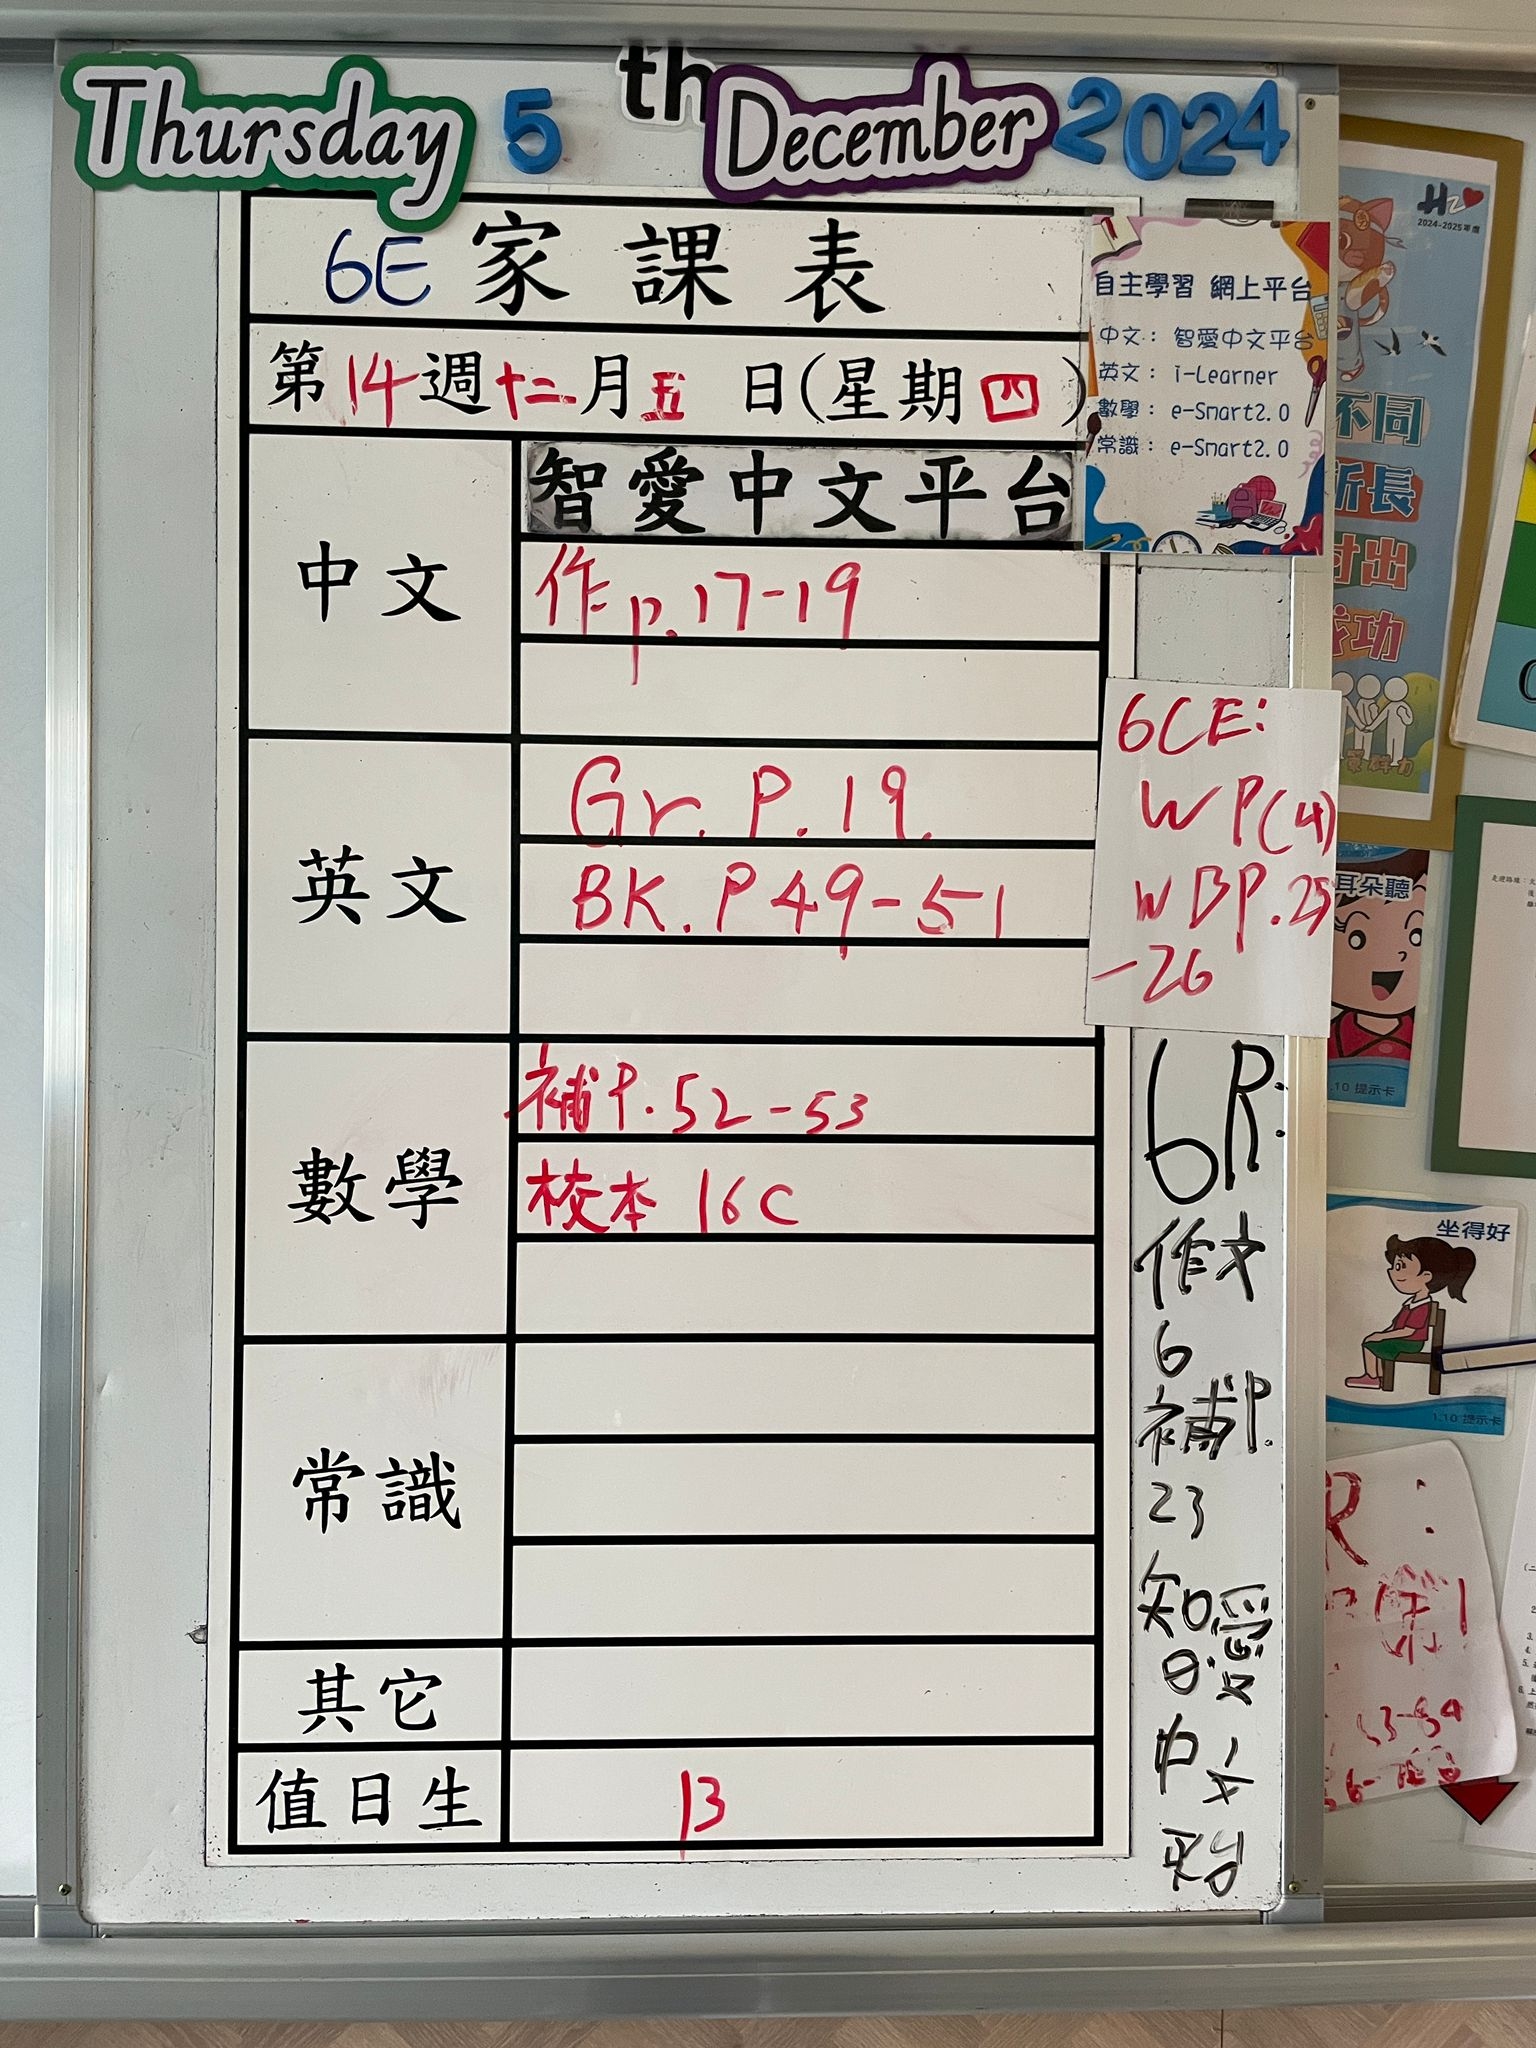 Thursday 5 th December 2024
6E 家課表
第14週十二月五日(星期四)
中文
智愛中文平台
作 p.17-19
英文
Gr. P.19
BK. P49-51
數學
補 P.52-53
校本 16C
常識
其它
值日生
13
自主學習 網上平台
中文： 智愛中文平台
英文： i-Learner
數學： e-Smart2.0
常識： e-Smart2.0
6CE:
WP(4)
WBP.25
-26
6R:
作文
6
補P.
23
智愛
中文
平台
2024-2025年度
不同
所長
付出
成功
耳朵聽
1.10 提示卡
坐得好
1.10 提示卡
R: